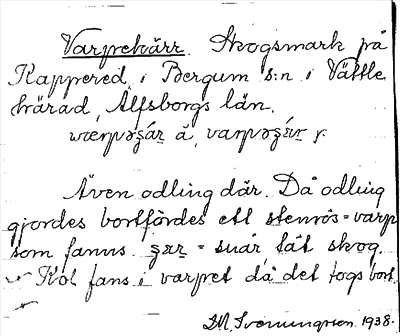 Varpekärr. Skogsmark på
Kappered i Bergum s:n i Vättle
härad, Älfsborgs län.
Även odling där. Då odling
gjordes bortfördes ett stenrös = varp
som fanns. = snår, tät skog.
Kol fans i varpet då det togs bort.
1938.